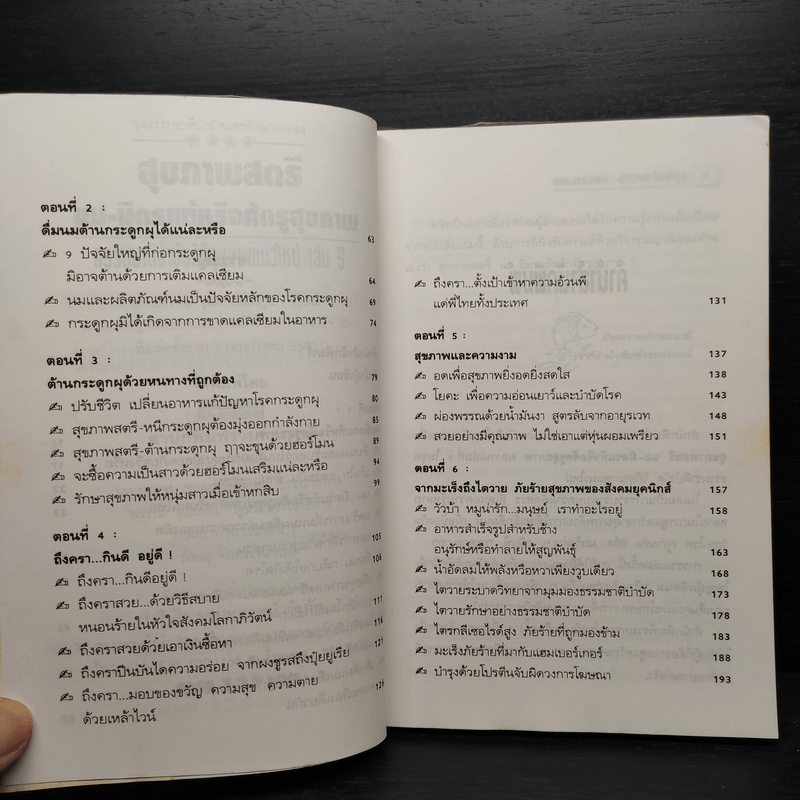 ตอนที่ 2 :
ดื่มนมต้านกระดูกผุได้แน่ละหรือ 63
9 ปัจจัยใหญ่ที่ก่อกระดูกผุ
มิอาจต้านด้วยการเติมแคลเซียม 64
นมและผลิตภัณฑ์นมเป็นปัจจัยหลักของโรคกระดูกผุ 69
กระดูกผุมิได้เกิดจากการขาดแคลเซียมในอาหาร 74
ตอนที่ 3 :
ต้านกระดูกผุด้วยหนทางที่ถูกต้อง 79
ปรับชีวิต เปลี่ยนอาหารแก้ปัญหาโรคกระดูกผุ 80
สุขภาพสตรี-หนีกระดูกผุต้องมุ่งออกกำลังกาย 85
สุขภาพสตรี-ต้านกระดูกผุ ฤาจะขุนด้วยฮอร์โมน 89
จะซื้อความเป็นสาวด้วยฮอร์โมนเสริมแน่ละหรือ 94
รักษาสุขภาพให้หนุ่มสาวเมื่อเข้าหกสิบ 99
ตอนที่ 4 :
ถึงครา...กินดี อยู่ดี ! 105
ถึงครา...กินดีอยู่ดี ! 106
ถึงคราสวย...ด้วยวิธีสบาย
หนอนร้ายในหัวใจสังคมโลกาภิวัตน์ 111
ถึงคราสวยด้วยเอาเงินซื้อหา 116
ถึงคราปีนบันไดความอร่อย จากผงชูรสถึงปุ๋ยยูเรีย 121
ถึงครา...มอบของขวัญ ความสุข ความตาย 126
ด้วยเหล้าไวน์
ถึงครา...ตั้งเป้าเข้าหาความอ้วนพี
แด่พี่ไทยทั้งประเทศ 131
ตอนที่ 5 :
สุขภาพและความงาม 137
อดเพื่อสุขภาพยิ่งอดยิ่งสดใส 138
โยคะ เพื่อความอ่อนเยาว์และบำบัดโรค 143
ผ่องพรรณด้วยน้ำมันงา สูตรลับจากอายุรเวท 148
สวยอย่างมีคุณภาพ ไม่ใช่เอาแต่หุ่นผอมเพรียว 151
ตอนที่ 6 :
จากมะเร็งถึงไตวาย ภัยร้ายสุขภาพของสังคมยุคนิกส์ 157
วัวบ้า หมูน่ารัก...มนุษย์ เราทำอะไรอยู่ 158
อาหารสำเร็จรูปสำหรับช้าง
อนุรักษ์หรือทำลายให้สูญพันธุ์ 163
น้ำอัดลมให้พลังหรือหวาเพียงวูบเดียว 168
ไตวายระบาดวิทยาจากมุมมองธรรมชาติบำบัด 173
ไตวายรักษาอย่างธรรมชาติบำบัด 178
ไตรกลีเซอไรด์สูง ภัยร้ายที่ถูกมองข้าม 183
มะเร็งภัยร้ายที่มากับแฮมเบอร์เกอร์ 188
บำรุงด้วยโปรตีนจับผิดวงการโฆษณา 193